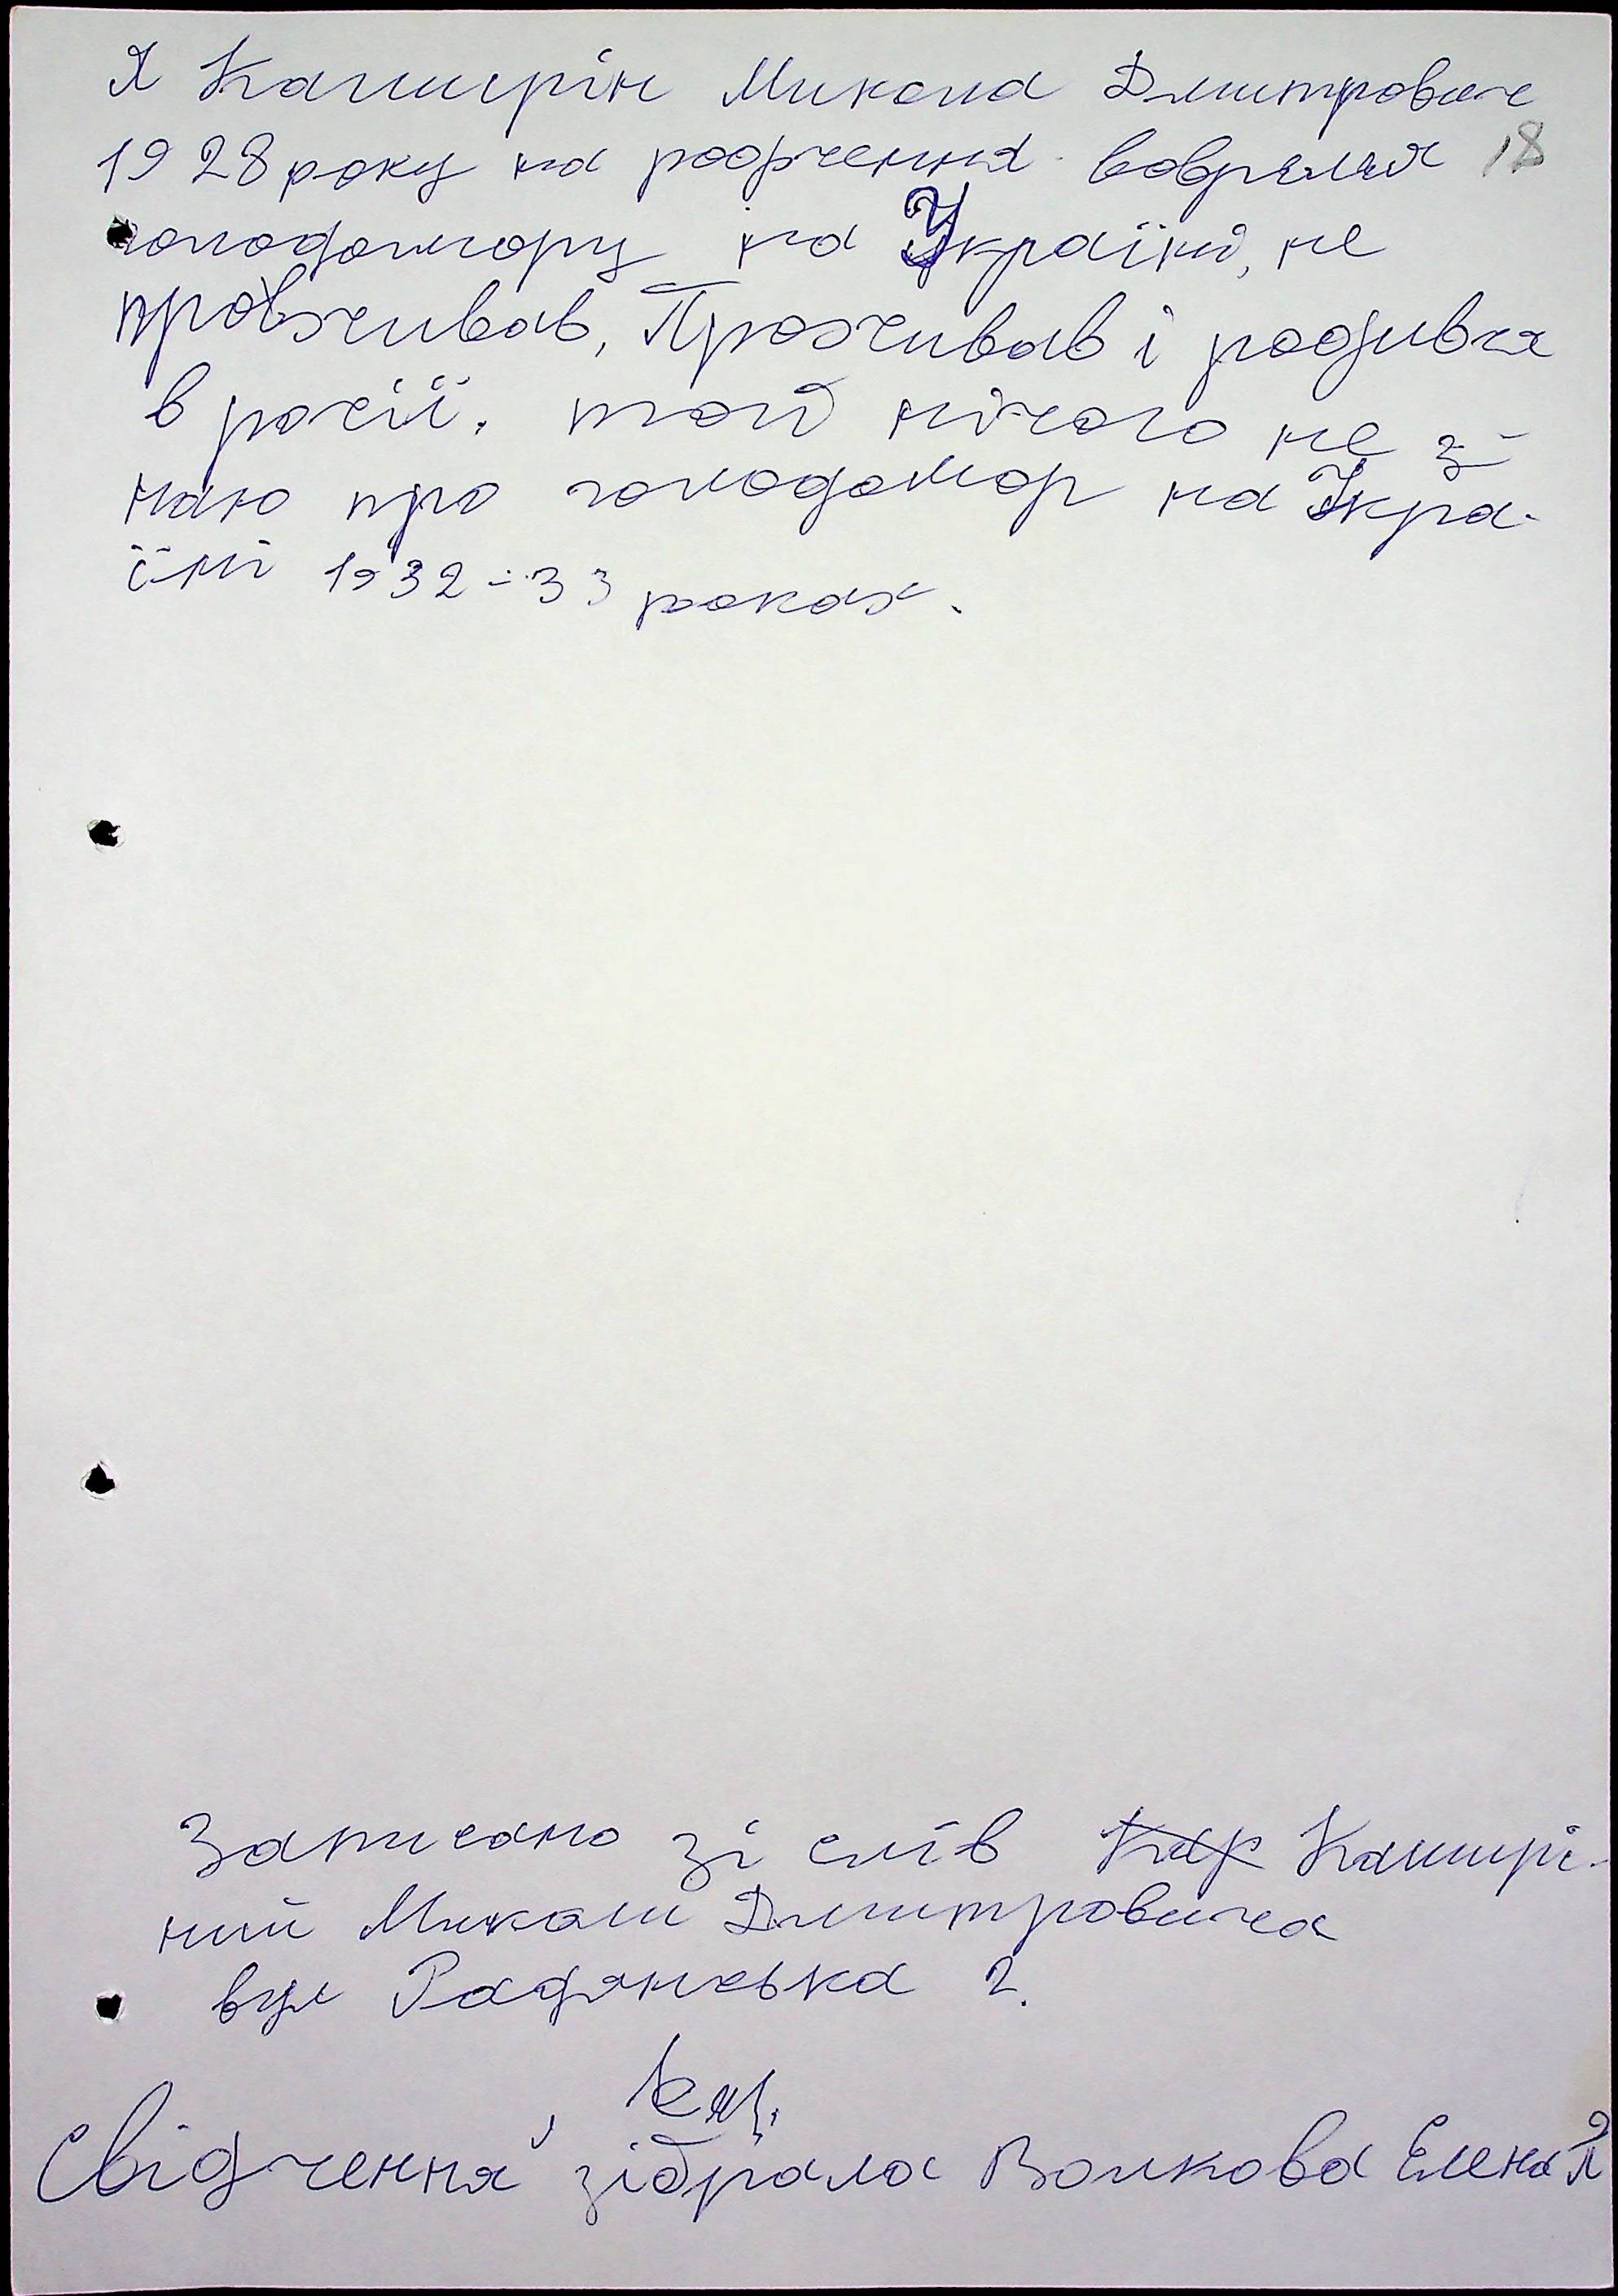 Я Каширін Микола Дмитрович
1928 року на роодження вовремя 18
голодомору на Україні, не
проживав, Проживав і родився
в росії. той нічого не з-
наю про голодомор на Укра-
їні 1932-33 роках.
Записано зі слів Кар Кашірі-
ний Миколи Дмитровича
вул Радянська 2.
Свідчення зібрала Волкова Елена